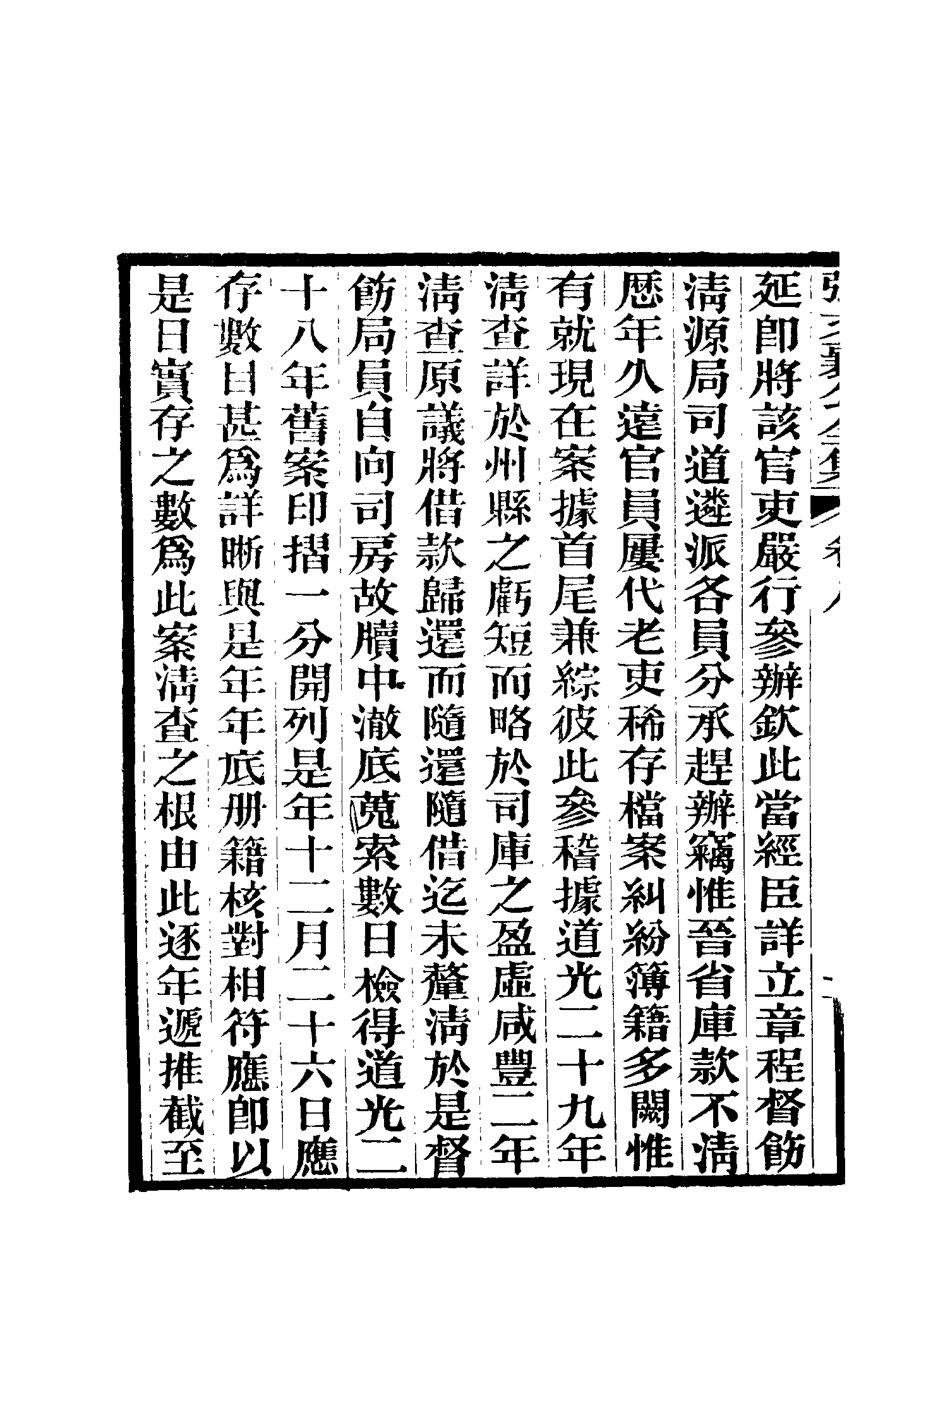 延卽將該官吏嚴行參辦欽此當經臣詳立章程督飭
淸源局司道遴派各員分承趕辦竊惟晉省庫款不淸
歷年久遠官員屢代老吏稀存檔案糾紛簿籍多闕惟
有就現在案據首尾兼綜彼此參稽據道光二十九年
淸查詳於州縣之虧短而略於司庫之盈虛咸豐二年
淸查原議將借款歸還而隨還隨借迄未釐淸於是督
飭局員自向司房故牘中澈底蒐索數日檢得道光二
十八年舊案印摺一分開列是年十二月二十六日應
存數目甚爲詳晰與是年年底册籍核對相符應卽以
是日實存之數爲此案淸查之根由此逐年遞推截至